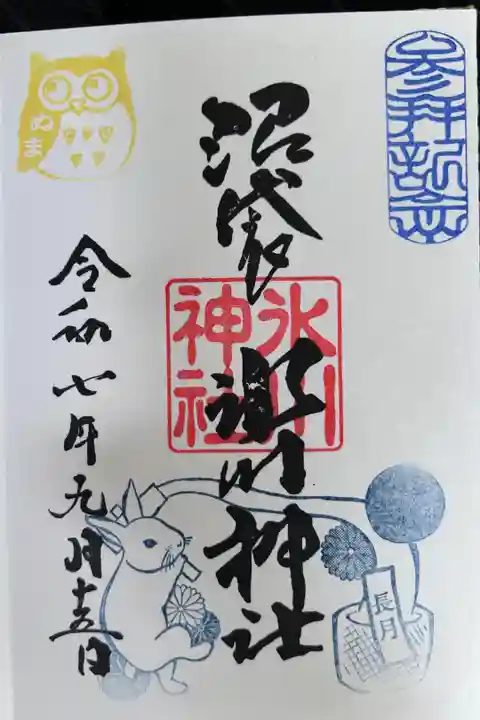 参拝記念
沼袋
氷川神社
氷川
神社
ぬま
令和七年九月十五日
長月